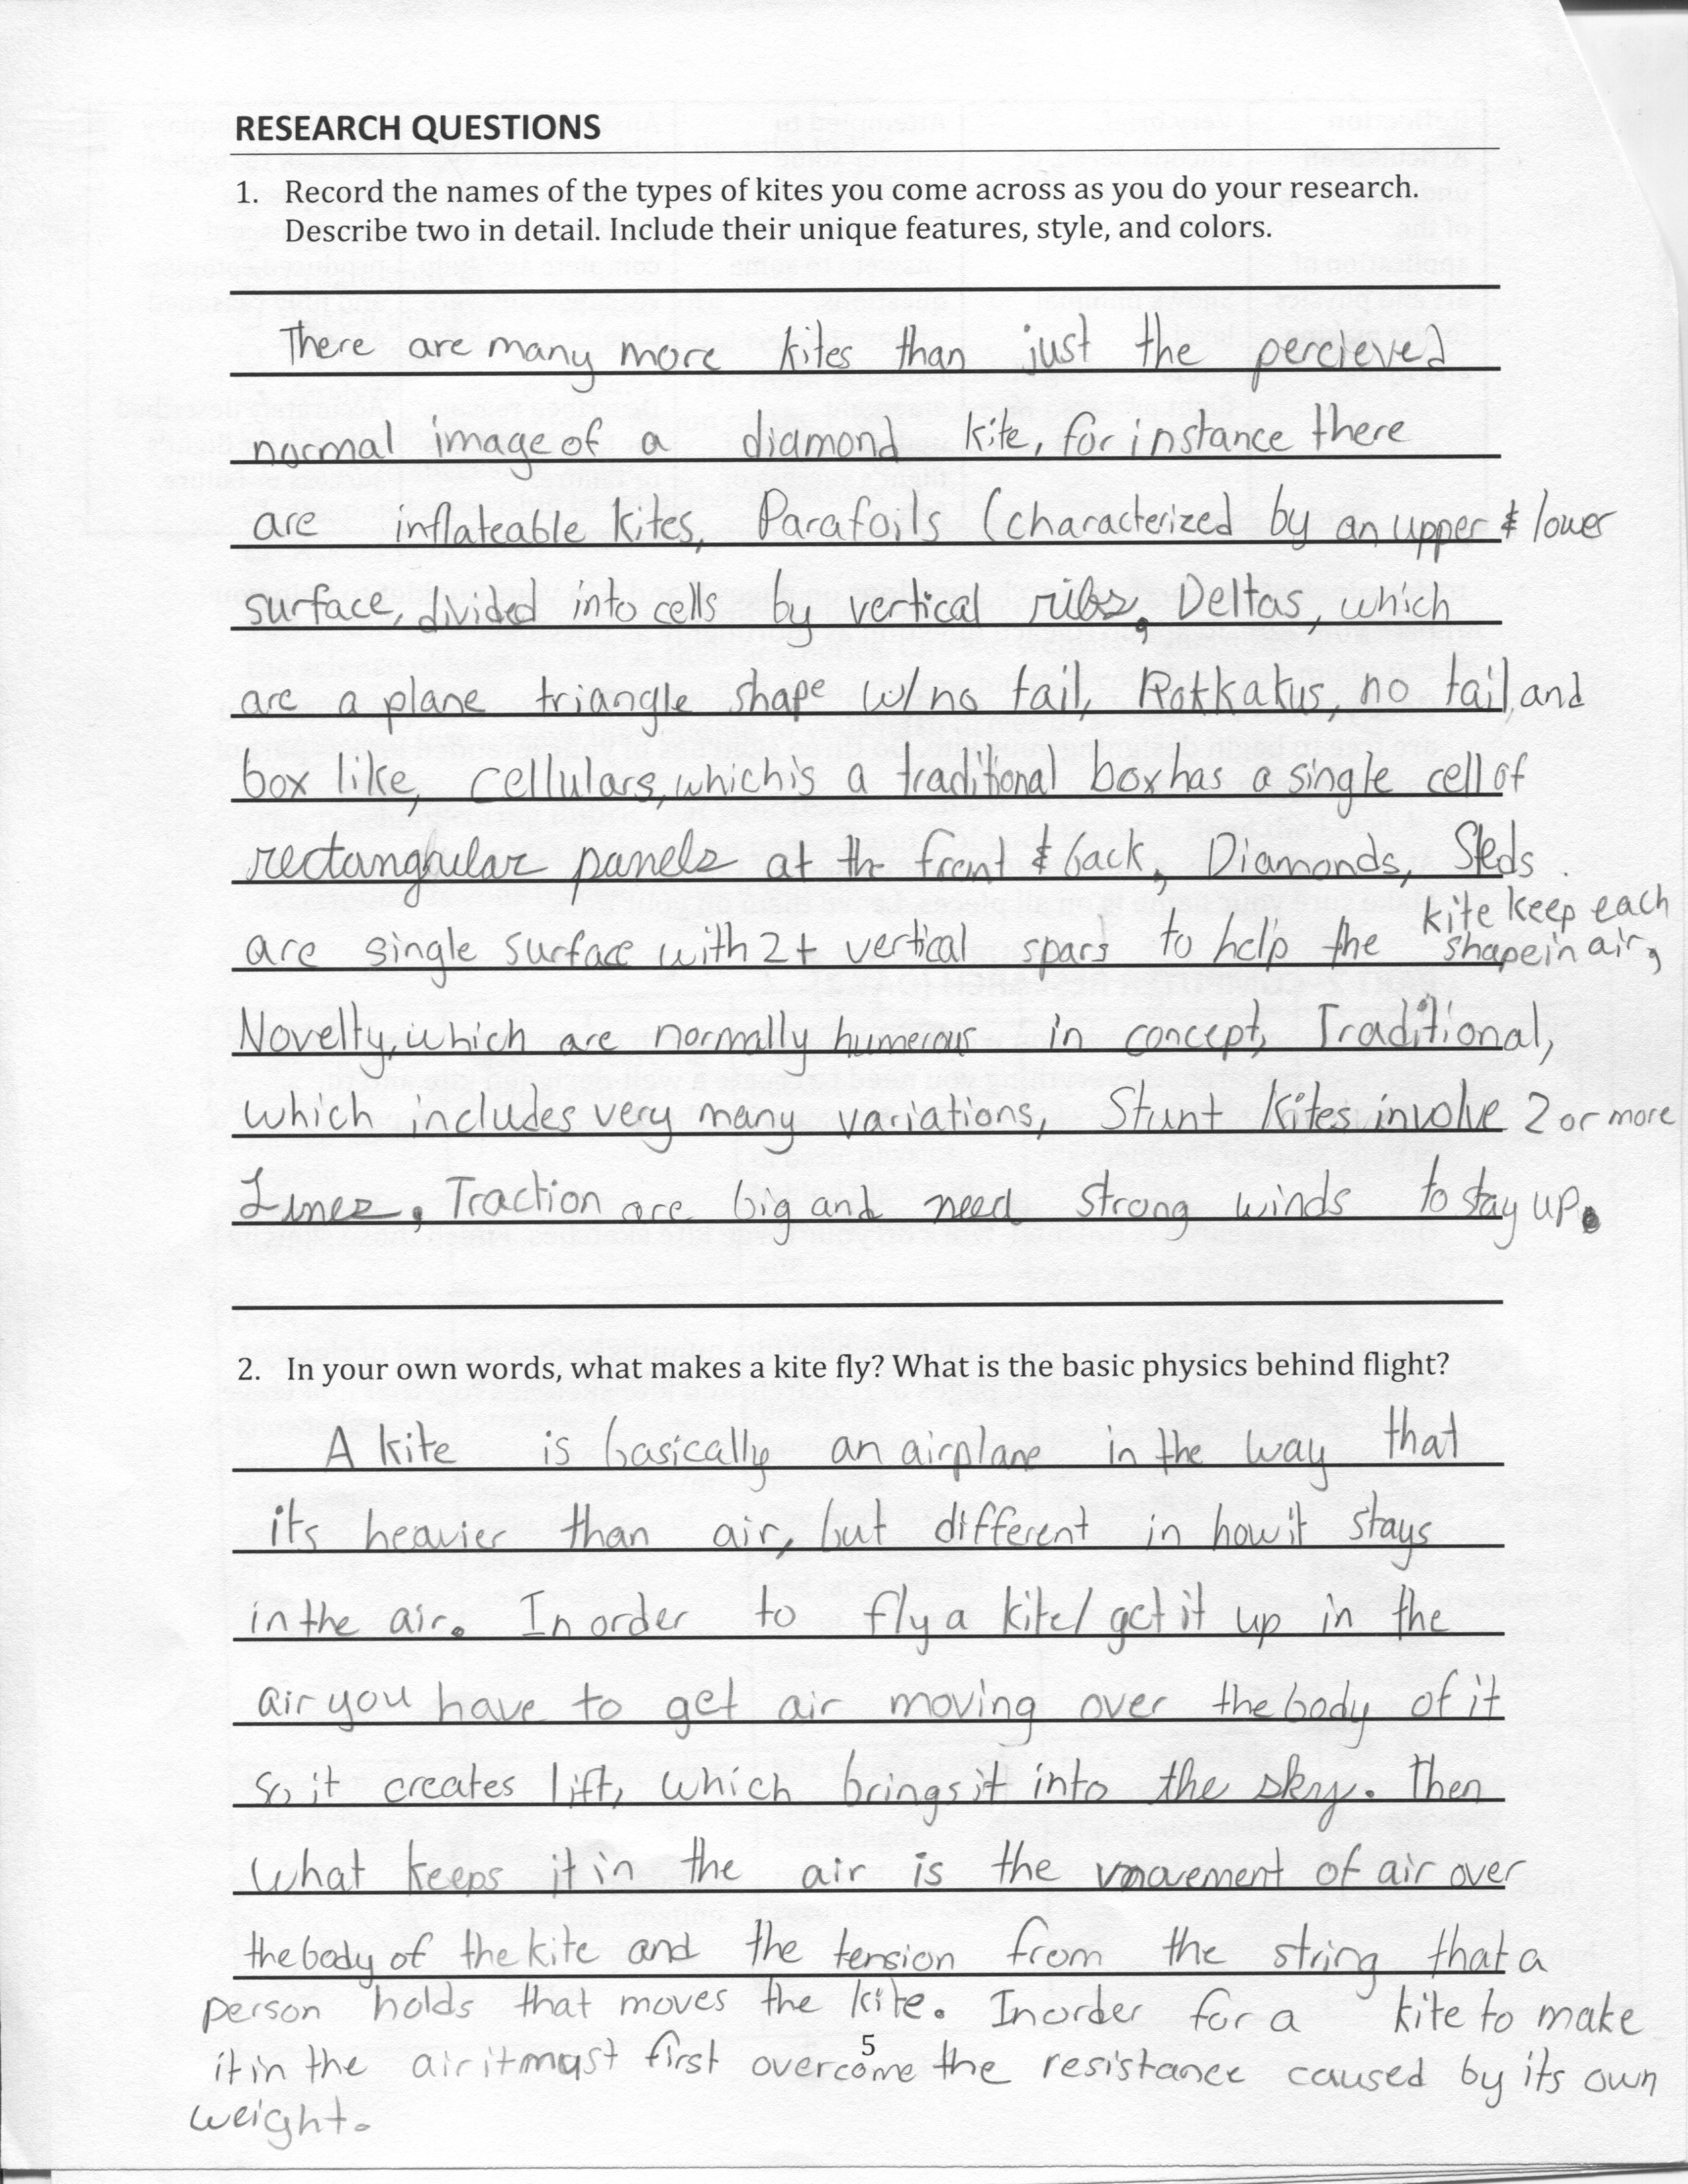 RESEARCH QUESTIONS
1. Record the names of the types of kites you come across as you do your research.
Describe two in detail. Include their unique features, style, and colors.
There are many more kites than just the percieved
normal image of a diamond kite, for instance there
are inflateable kites, Parafoils (characterized by an upper & lower
surface, divided into cells by vertical ribs, Deltas, which
are a plane triangle shape w/ no tail, Rokkakus, no tail, and
box like, cellulars, which is a traditional box has a single cell of
rectangular panels at the front & back, Diamonds, Sleds
are single surface with 2+ vertical spars to help the kite keep each
shape in air,
Novelty, which are normally humerous in concept, Traditional,
which includes very many variations, Stunt Kites involve 2 or more
Lines, Traction are big and need strong winds to stay up.
2. In your own words, what makes a kite fly? What is the basic physics behind flight?
A kite is basically an airplane in the way that
its heavier than air, but different in how it stays
in the air. In order to fly a kite/ get it up in the
air you have to get air moving over the body of it
so it creates lift, which brings it into the sky. Then
what keeps it in the air is the movement of air over
the body of the kite and the tension from the string that a
person holds that moves the kite. In order for a kite to make
it in the air it must first overcome the resistance caused by its own
weight.
5